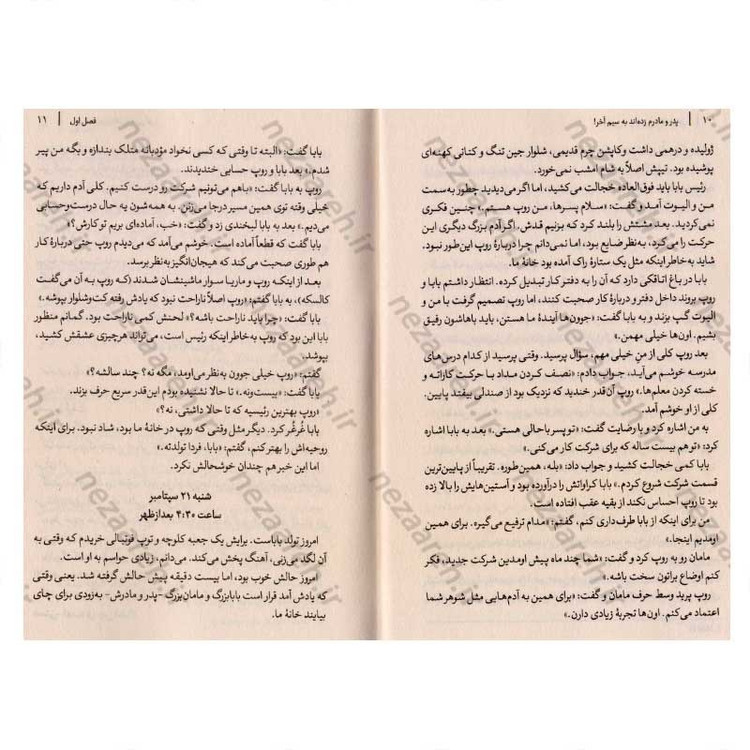 ۱۰ | پدر و مادرم زده‌اند به سیم آخر!
ژولیده و درهمی داشت و کاپشن چرم قدیمی، شلوار جین تنگ و کتانی کهنه‌ای
پوشیده بود. تیپش اصلاً به شام امشب نمی‌خورد.
رئیس بابا باید فوق‌العاده خجالت می‌کشید، اما اگر می‌دیدید چطور به سمت
من و الیوت آمد و گفت: «سلام پسرها، من روپ هستم.» چنین فکری
نمی‌کردید. بعد مشتش را بلند کرد که بزنیم قدش. اگر آدم بزرگ دیگری این
حرکت را می‌کرد، به‌نظر ضایع بود، اما نمی‌دانم چرا دربارهٔ روپ این‌طور نبود.
شاید به‌خاطر اینکه مثل یک ستارهٔ راک آمده بود خانهٔ ما.
بابا در باغ اتاقکی دارد که آن را به دفتر کار تبدیل کرده. انتظار داشتم بابا و
روپ بروند داخل دفتر و دربارهٔ کار صحبت کنند، اما روپ تصمیم گرفت با من و
الیوت گپ بزند و به بابا گفت: «جوون‌ها آیندهٔ ما هستن، باید باهاشون رفیق
بشیم. اون‌ها خیلی مهمن.»
بعد روپ کلی از منِ خیلی مهم، سؤال پرسید. وقتی پرسید از کدام درس‌های
مدرسه خوشم می‌آید، جواب دادم: «نصف کردن مداد با حرکت کاراته و
خسته کردن معلم‌ها.» روپ آن‌قدر خندید که نزدیک بود از صندلی بیفتد پایین.
کلی از او خوشم آمد.
به من اشاره کرد و با رضایت گفت: «تو پسر باحالی هستی.» بعد به بابا اشاره
کرد: «تو هم بیست ساله که برای شرکت کار می‌کنی.»
بابا کمی خجالت کشید و جواب داد: «بله، همین‌طوره. تقریباً از پایین‌ترین
قسمت شروع کردم.» بابا کراواتش را درآورده بود و آستین‌هایش را بالا زده
بود تا روپ احساس نکند از بقیه عقب افتاده است.
من برای اینکه از بابا طرف‌داری کنم، گفتم: «مدام ترفیع می‌گیره. برای همین
اومدیم اینجا.»
مامان رو به روپ کرد و گفت: «شما چند ماه پیش اومدین شرکت جدید، فکر
کنم اوضاع براتون سخت باشه.»
روپ پرید وسط حرف مامان و گفت: «برای همین به آدم‌هایی مثل شوهر شما
اعتماد می‌کنم. اون‌ها تجربهٔ زیادی دارن.»
فصل اول | ۱۱
بابا گفت: «البته تا وقتی که کسی نخواد مؤدبانه متلک بندازه و بگه من پیر
شدم.» بعد بابا و روپ حسابی خندیدند.
روپ به بابا گفت: «باهم می‌تونیم شرکت رو درست کنیم. کلی آدم داریم که
خیلی وقته توی همین مسیر درجا می‌زنن. به همه‌شون یه حال درست‌وحسابی
می‌دیم.» بعد به بابا لبخندی زد و گفت: «خب، آماده‌ای بریم تو کارش؟»
بابا گفت که قطعاً آماده است. خوشم می‌آمد که می‌دیدم روپ حتی دربارهٔ کار
هم طوری صحبت می‌کند که هیجان‌انگیز به‌نظر برسد.
بعد از اینکه روپ و ماریا سوار ماشینشان شدند (که روپ به آن می‌گفت
کالسکه)، به بابا گفتم: «روپ اصلاً ناراحت نبود که یادش رفته کت‌وشلوار بپوشه.»
بابا گفت: «چرا باید ناراحت باشه؟» لحنش کمی ناراحت بود. گمانم منظور
بابا این بود که روپ به‌خاطر اینکه رئیس است، می‌تواند هرچیزی عشقش کشید،
بپوشد.
گفتم: «روپ خیلی جوون به‌نظر می‌اومد، مگه نه؟ چند سالشه؟»
بابا گفت: «بیست‌ونه.» تا حالا نشنیده بودم این‌قدر سریع حرف بزند.
«روپ بهترین رئیسیه که تا حالا داشتی، نه؟»
بابا غُرغُر کرد. دیگر مثل وقتی که روپ در خانهٔ ما بود، شاد نبود. برای اینکه
روحیه‌اش را بهتر کنم، گفتم: «بابا، فردا تولدته.»
اما این خبر هم چندان خوشحالش نکرد.
شنبه ۲۱ سپتامبر
ساعت ۴:۳۰ بعدازظهر
امروز تولد باباست. برایش یک جعبه کلوچه و توپ فوتبالی خریدم که وقتی به
آن لگد می‌زنی، آهنگ پخش می‌کند. می‌دانم، زیادی حواسم به او است.
امروز حالش خوب بود، اما بیست دقیقه پیش حالش گرفته شد. یعنی وقتی
که یادش آمد قرار است بابابزرگ و مامان‌بزرگ -پدر و مادرش- به‌زودی برای چای
بیایند خانهٔ ما.
nezaareh.ir